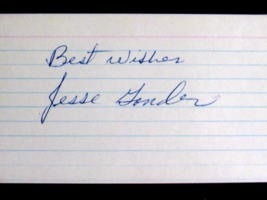 Best Wishes
Jesse Gonder